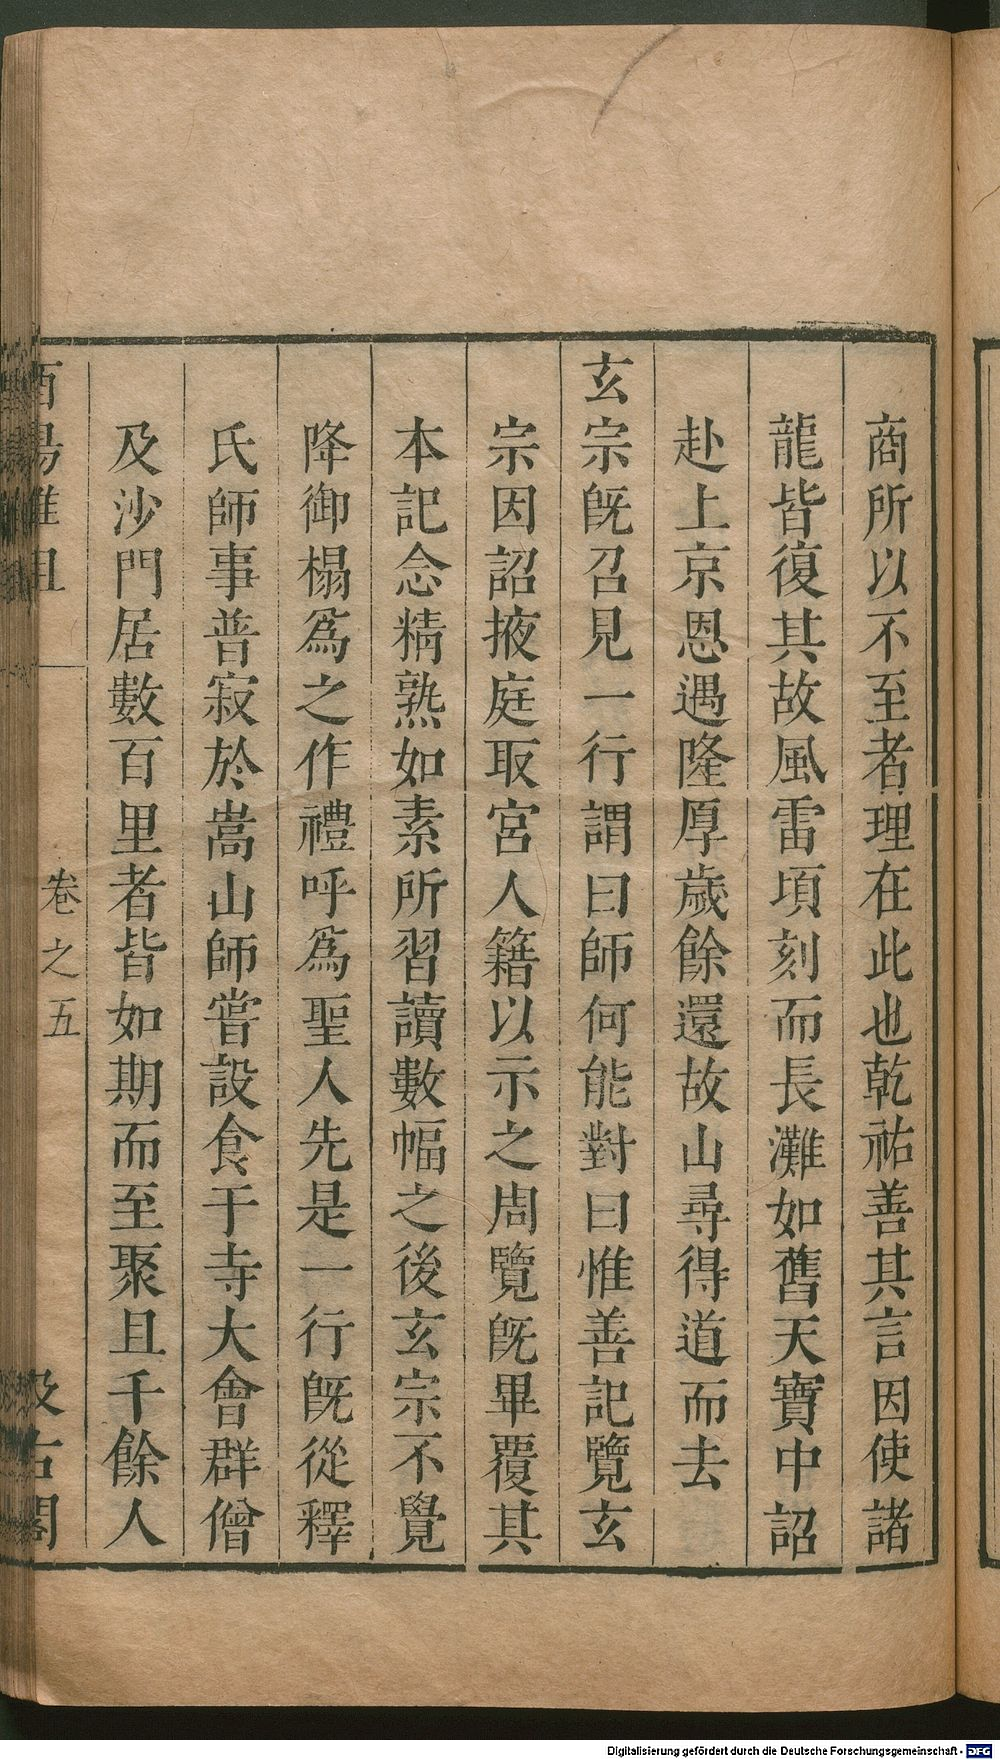 商所以不至者理在此也乾祐善其言因使諸
龍皆復其故風雷頃刻而長灘如舊天寶中詔
赴上京恩遇隆厚歲餘還故山尋得道而去
玄宗旣召見一行謂曰師何能對曰惟善記覽玄
宗因詔掖庭取宮人籍以示之周覽旣畢覆其
本記念精熟如素所習讀數幅之後玄宗不覺
降御榻爲之作禮呼爲聖人先是一行旣從釋
氏師事普寂於嵩山師嘗設食于寺大會群僧
及沙門居數百里者皆如期而至聚且千餘人
酉陽雜俎 卷之五 汲古閣
Digitalisierung gefördert durch die Deutsche Forschungsgemeinschaft - DFG